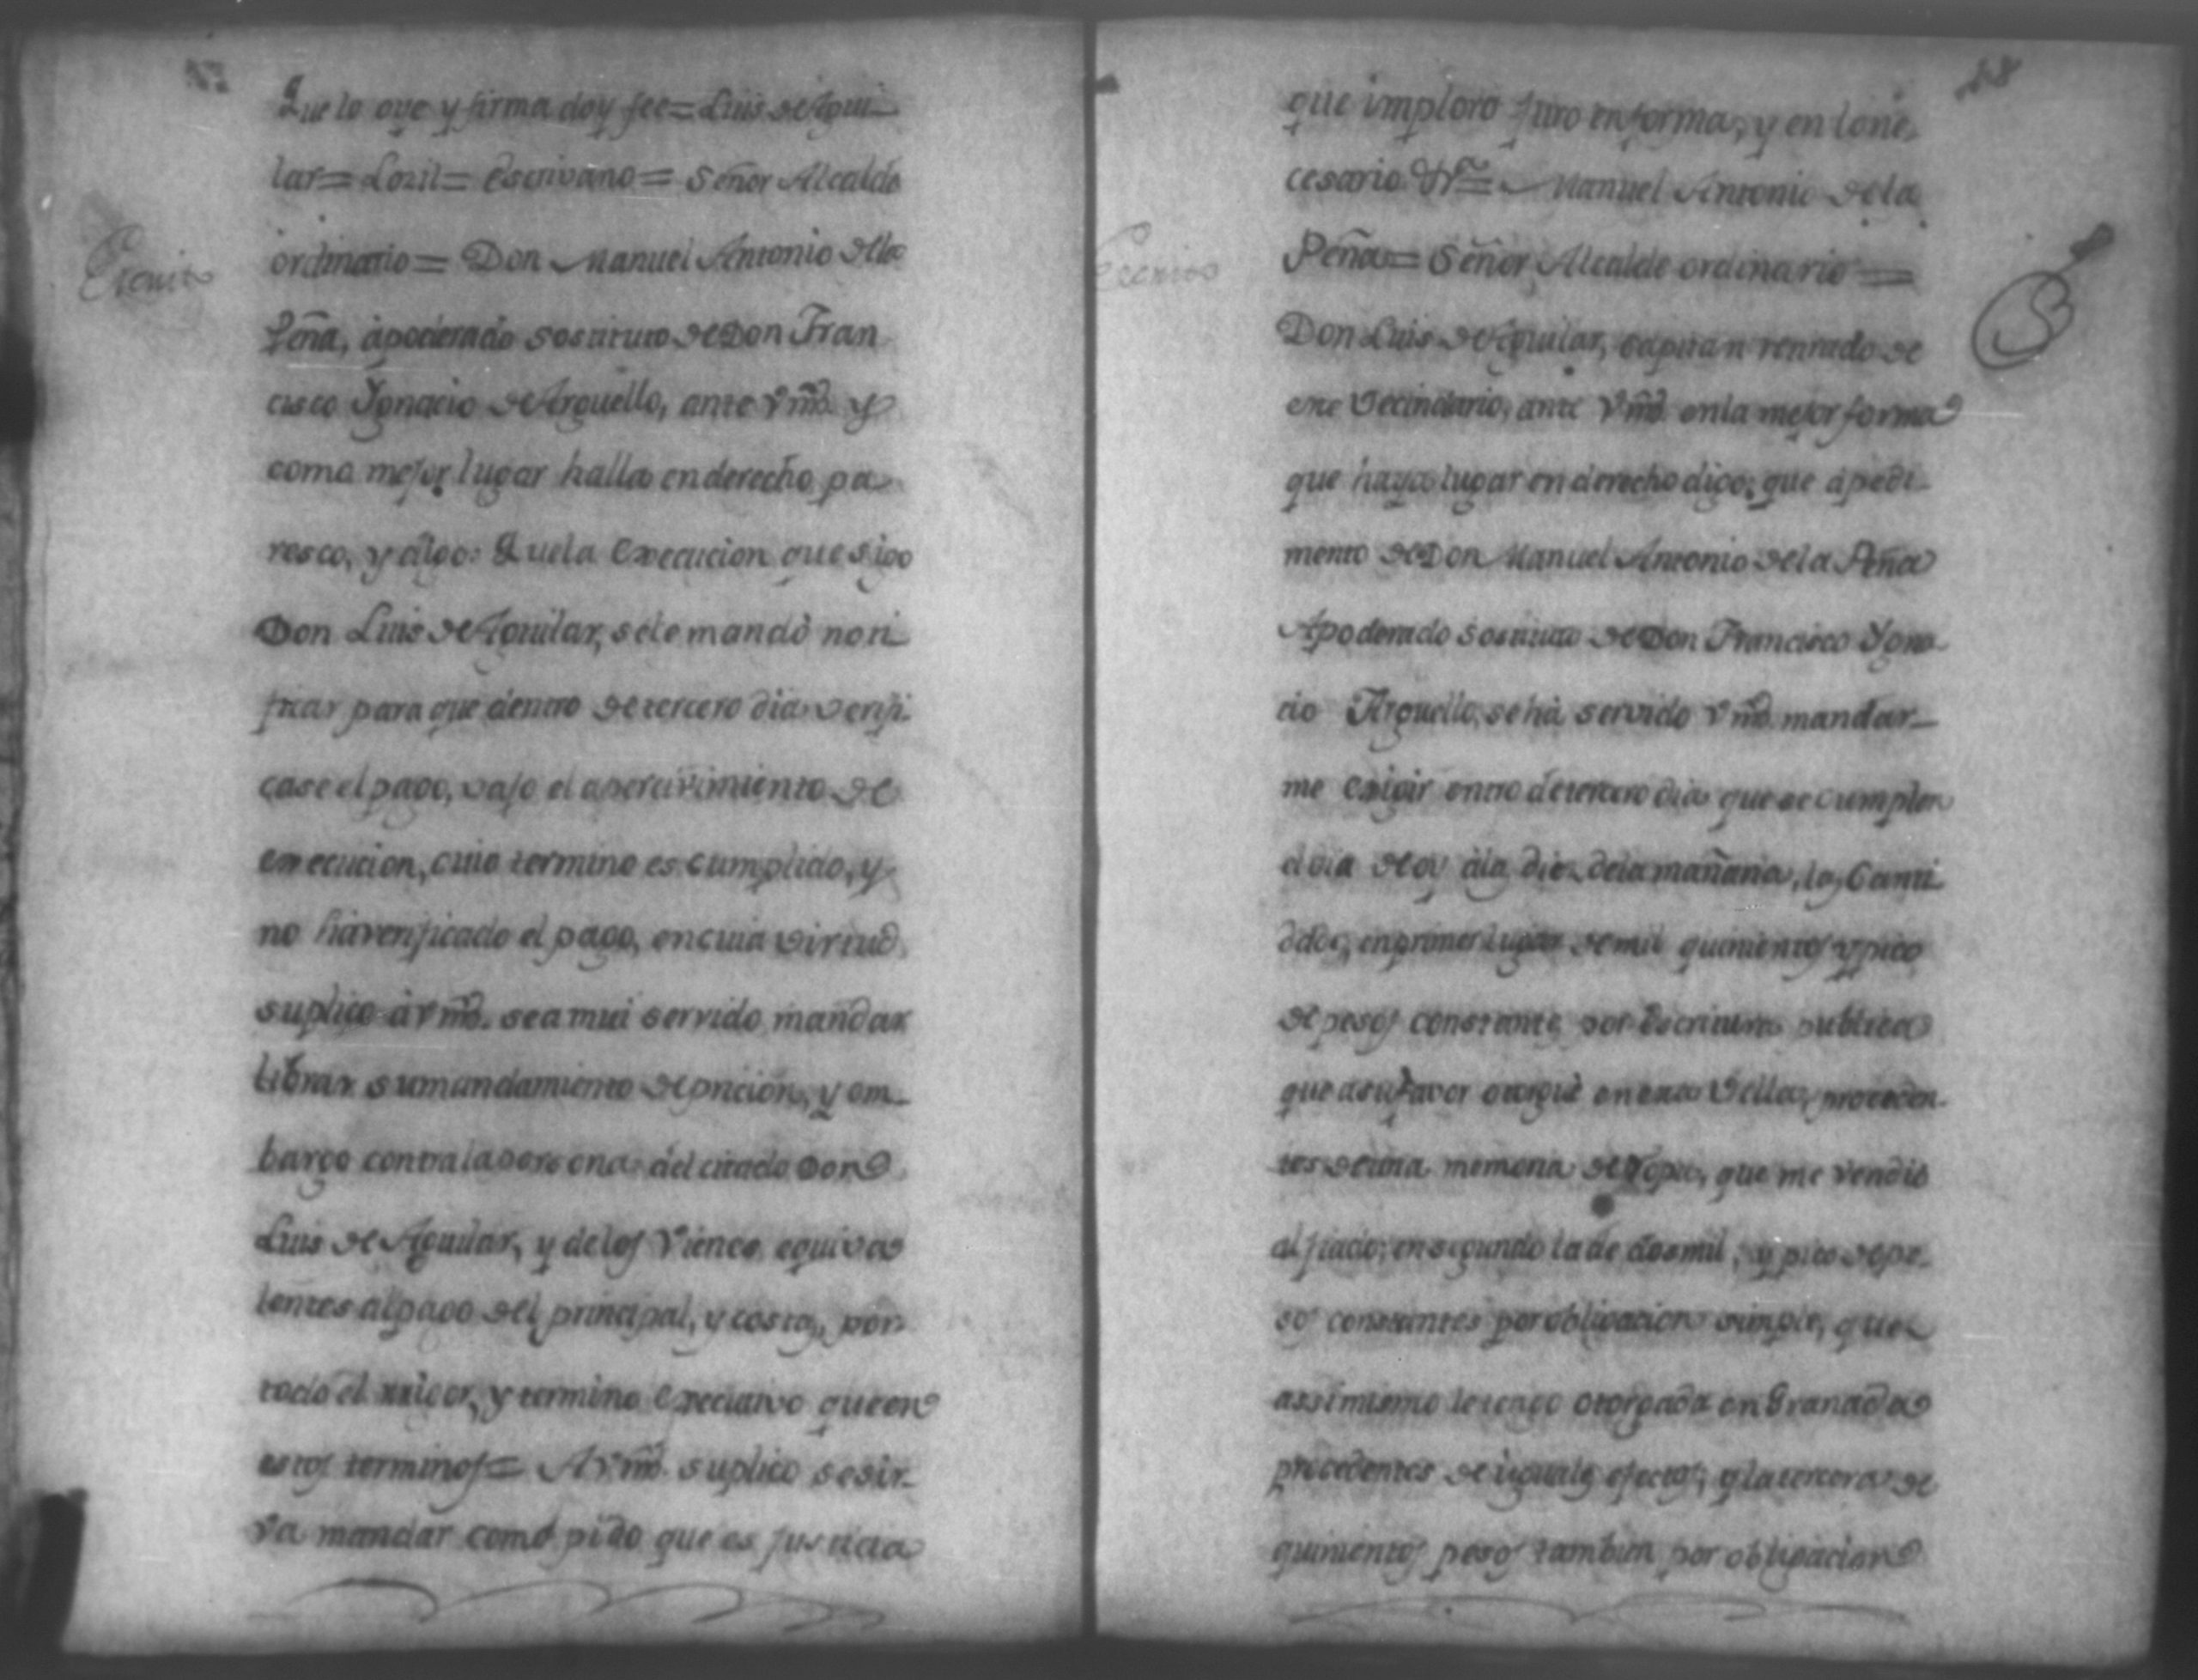 Que lo oye y firma doy fee = Luis de Agui-
lar = Lozil = Escrivano = Señor Alcalde
Escrito
ordinario = Don Manuel Antonio dela
Peña, apoderado sostituto de Don Fran
cisco Ygnacio de Arguello, ante Vmd. y
como mejor lugar halla en derecho pa-
resco, y digo: Que la Execucion que sigo
Don Luis de Aguilar, se le mandò noti-
ficar para que dentro de tercero dia verifi-
case el pago, vajo el apercivimiento de
execucion, cuio termino es cumplido, y
no há verificado el pago, en cuia virtud
suplico à Vmd. sea mui servido mandar
librar su mandamiento de pricion, y em-
bargo contra la persona del citado Don
Luis de Aguilar, y de los Vienes equiva
lentes al pago del principal, y costas, por
todo el rrigor, y termino Executivo que en
estos terminos = A Vmd. suplico se sir-
va mandar como pido que es justicia
que imploro juro en forma, y en lo ne-
cesario &ª = Manuel Antonio dela
Escrito
Peña = Señor Alcalde ordinario =
Don Luis de Aguilar, capitan retirado de
este Vecindario, ante Vmd. en la mejor forma
que haya lugar en derecho digo, que à pedi-
mento de Don Manuel Antonio de la Peña
Apoderado sostituto de Don Francisco Ygna-
cio Arguello, se há servido Vmd. mandar-
me exigir entro de tercero dia que se cumplen
el dia de oy à las diez de la mañana, las Canti-
dades, en primer lugar de mil quinientos y pico
de pesos constante por Escritura publica
que a su favor otorguè en esta Villa, proceden-
tes de una memoria de Ropa, que me vendió
al fiado; en segundo la de dos mil, y pico de pe-
sos constantes por obligacion simple, que
assimismo le tengo otorgada en Granada
procedentes de iguales efectos; y la tercera de
quinientos pesos tambien por obligacion